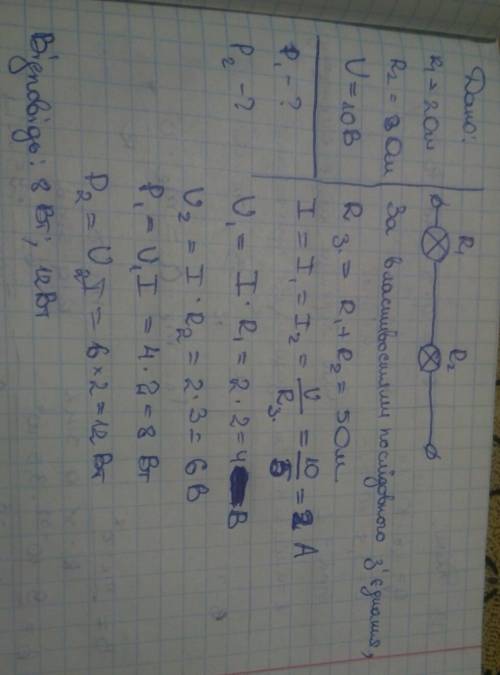 Дано:
R₁ = 2 Ом
R₂ = 3 Ом
U = 10 В
P₁ - ?
P₂ - ?
R₁ R₂
За властивостями послідовного з'єднання,
R з. = R₁ + R₂ = 5 Ом
I = I₁ = I₂ = U/Rз. = 10/5 = 2 А
U₁ = I · R₁ = 2 · 2 = 4 В
U₂ = I · R₂ = 2 · 3 = 6 В
P₁ = U₁I = 4 · 2 = 8 Вт
P₂ = U₂I = 6 × 2 = 12 Вт
Відповідь: 8 Вт; 12 Вт